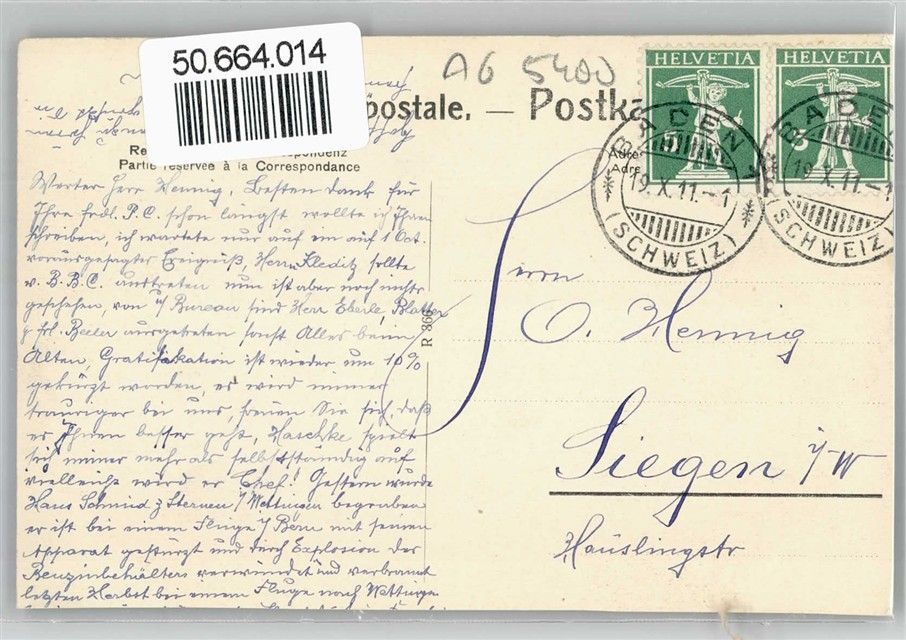 50.664.014
A6 5400
postale. — Postka
Partie réservée à la Correspondance
HELVETIA
HELVETIA
5
5
BADEN
19.X.11.–1
(SCHWEIZ)
BADEN
19.X.11.–1
(SCHWEIZ)
Werter Herr Hennig, Besten Dank für
Ihre frdl. P.C. schon längst wollte ich Ihnen
schreiben, ich wartete nur auf ein auf 1 Oct.
vorausgesagtes Ereigniß, Herr Kleditz sollte
v. B.B.C. austreten nun ist aber noch nichts
geschehen, von i/ Bureau sind Herr Eberle, Blatter
& frl. Beeler ausgetreten sonst Alles beim
Alten, Gratifikation ist wieder um 10%
gekürzt worden, es wird immer
trauriger bei uns, freuen Sie sich, daß
es Ihnen besser geht, Haschke spielt
sich immer mehr als selbstständig auf
vielleicht wird er Chef! Gestern wurde
Hans Schmid z Sternen i/ Wettingen begraben
er ist bei einem Fluge i/ Bern mit seinem
Apparat gestürzt und durch Explosion des
Benzinbehälters verwundet und verbrannt
letzten Herbst bei einem Fluge nach Wettingen
R 866
Herrn
O. Hennig
Siegen i/W
Häuslingstr